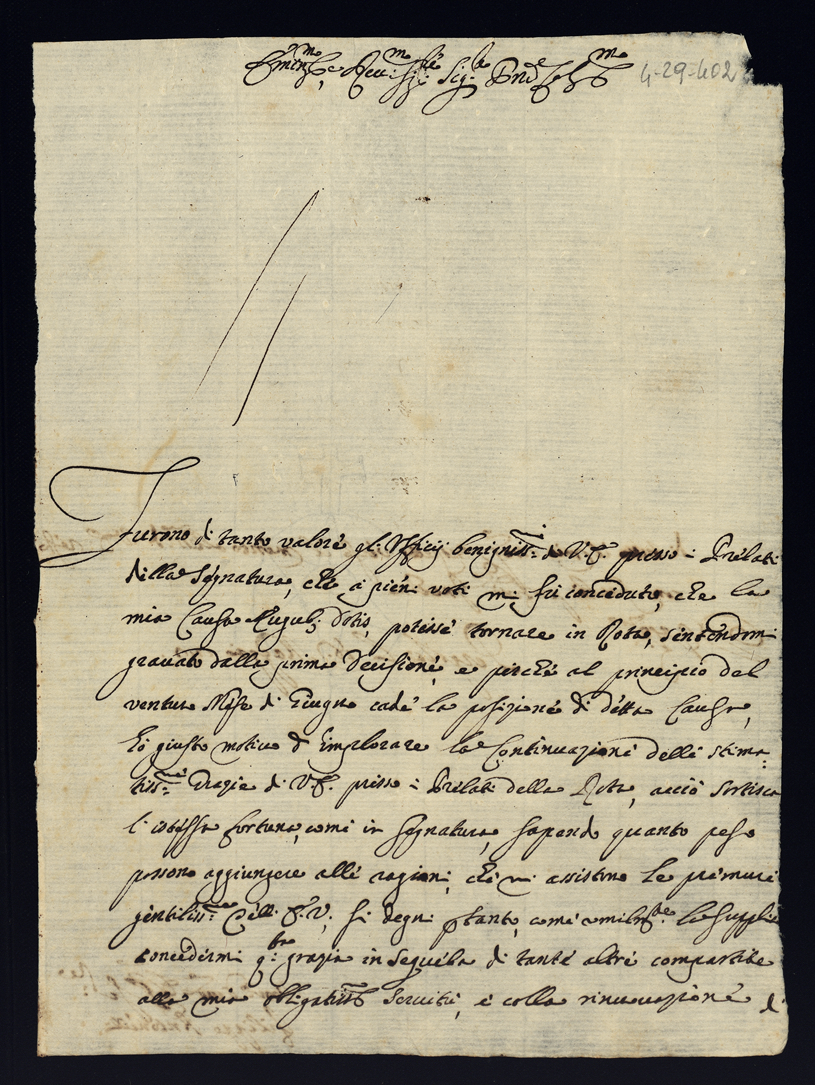 Emin.mo e Reu.mo Sig.re Sig.re Prone Col.mo
4-29-402
Furono di tanto valore gl'Vfficij benigniss.mi di V.E. presso i Prelati
della Segnatura, che à pieni voti mi fù conceduto, che la
mia Causa Eugubi. Dotis, potesse tornare in Rota, sentendomi
gravato dalla prima decisione, e perche al principio del
venturo Mese di Giugno cade la posizione di detta Causa,
hò giusto motivo d'implorare la Continuazione delle stima-
tiss.me Grazie di V.E. presso i Prelati della Rota, acciò sortisca
l'istessa fortuna, come in segnatura, sapendo quanto peso
possono aggiungere alle ragioni, che mi assistono le premure
gentiliss.me dell'E.V., si degni ptanto, come umilm.te la supplico
concedermi q.sta grazia in sequela di tante altre compartite
alla mia obligatiss.ma servitù, e colla rinovazione di